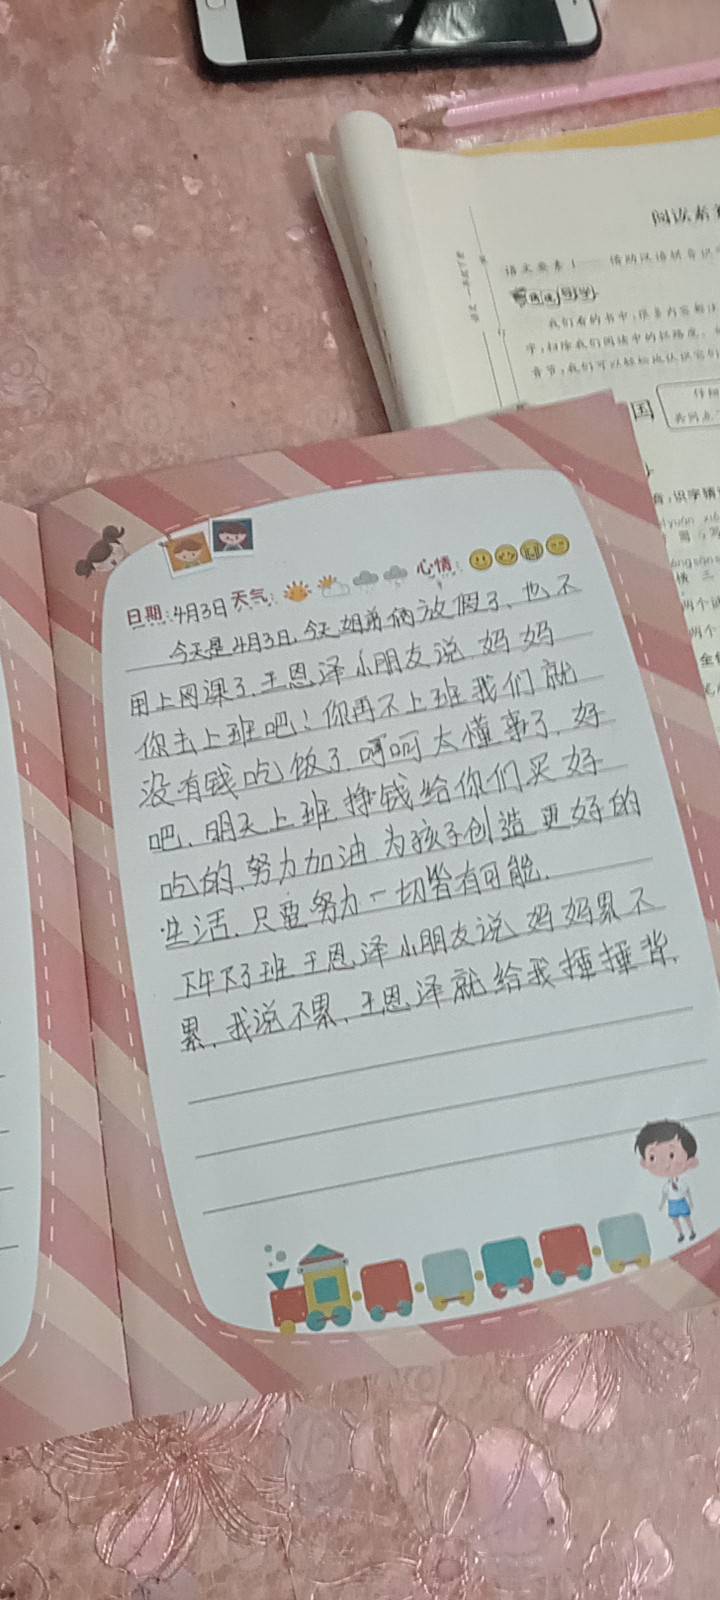 阅读素
语文要素1——借助汉语拼音识
我们看的书中,很多内容都注
字,扫除我们阅读中的拦路虎。
音节,我们可以轻松地认识它们
国
仔细
音,识字猜
两个
两个
日期:4月3日 天气: 心情:
今天是4月3日,今天姐弟俩放假了、也不
用上网课了.王恩泽小朋友说 妈妈
你去上班吧!你再不上班我们就
没有钱吃饭了.呵呵太懂事了.好
吧、明天上班挣钱给你们买好
吃的.努力加油.为孩子创造更好的
生活.只要努力一切皆有可能.
下午下了班王恩泽小朋友说 妈妈累不
累,我说不累、王恩泽就给我捶捶背.